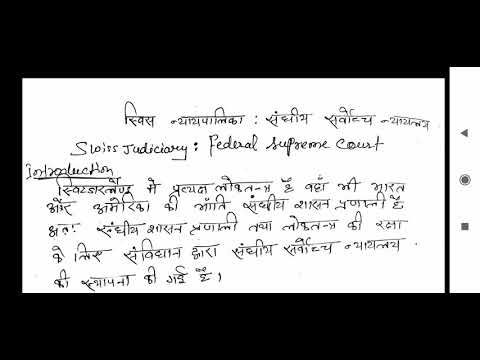 स्विस न्यायपालिका : संघीय सर्वोच्च न्यायलय
Swiss Judiciary : Federal Supreme Court
Introduction
स्विटजरलैण्ड में प्रत्यक्ष लोकतन्त्र हैं वहाँ भी भारत
और अमेरिका की भाँति संघीय शासन प्रणाली हैं
अतः संघीय शासन प्रणाली तथा लोकतन्त्र की रक्षा
के लिए संविधान द्वारा संघीय सर्वोच्च न्यायलय
की स्थापना की गई हैं।